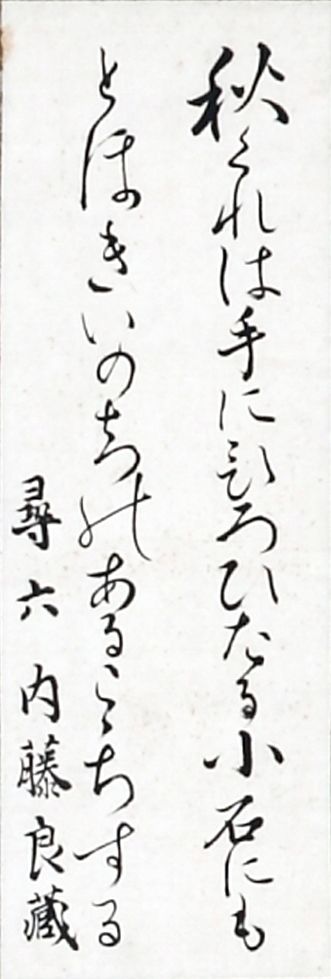 秋くれは手にひろひたる小石にも
とほきいのちのあるこゝちする
尋六 内藤良藏